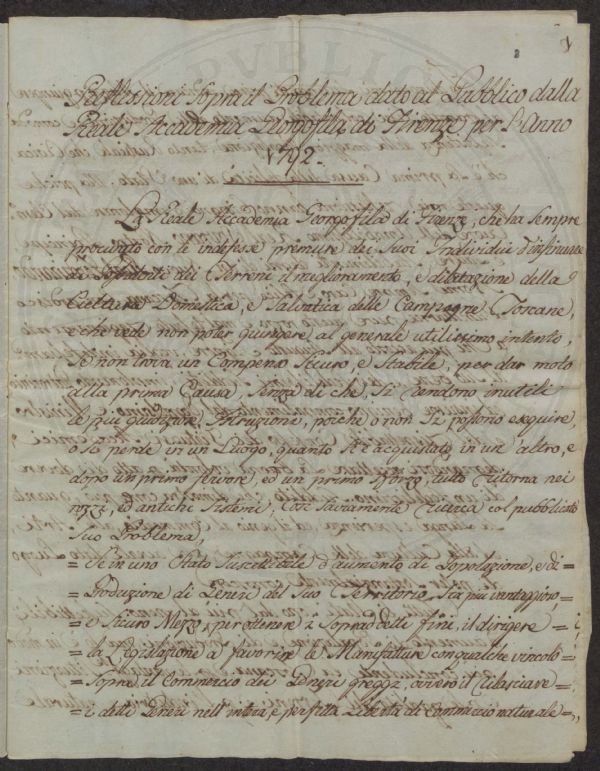 Reflessioni Sopra il Problema dato al Pubblico dalla
Reale Accademia Georgofila di Firenze per l'Anno
1792.
La Reale Accademia Georgofila di Firenze, che ha Sempre
procurato con le indefesse premure dei Suoi Individui d'insinuare
ai dei Terreni il miglioramento, e dilatazione della
Cultura Domestica, e Salvatica delle Campagne Toscane,
e che vede non poter giungere al generale utilissimo intento,
Se non trova un Compenso Sicuro, e Stabile, per dar moto
alla prima Causa, Senza di che, Si rendono inutili
le più giudiziose Istruzioni, poichè o non Si possono eseguire,
o Si perde in un Luogo, quanto Si è acquistato in un altro, e
dopo un primo fervore, ed un primo Sforzo, tutto ritorna nei
rozzi, ed antichi Sistemi, Così Saviamente col pubblicato
Suo Problema,
= Se in uno Stato Suscettibile d'aumento di Popolazione, e di =
= Produzione di Generi del Suo Territorio, Sia più vantaggioso, =
= e Sicuro Mezzo per ottenere i Sopraddetti fini, il dirigere =
= la Legislazione a favorire le Manifatture con qualche vincolo =
= Sopra il Commercio dei Generi greggi, ovvero il rilasciare =
= i detti Generi nell'intera, e perfetta Libertà di Commercio naturale =,,